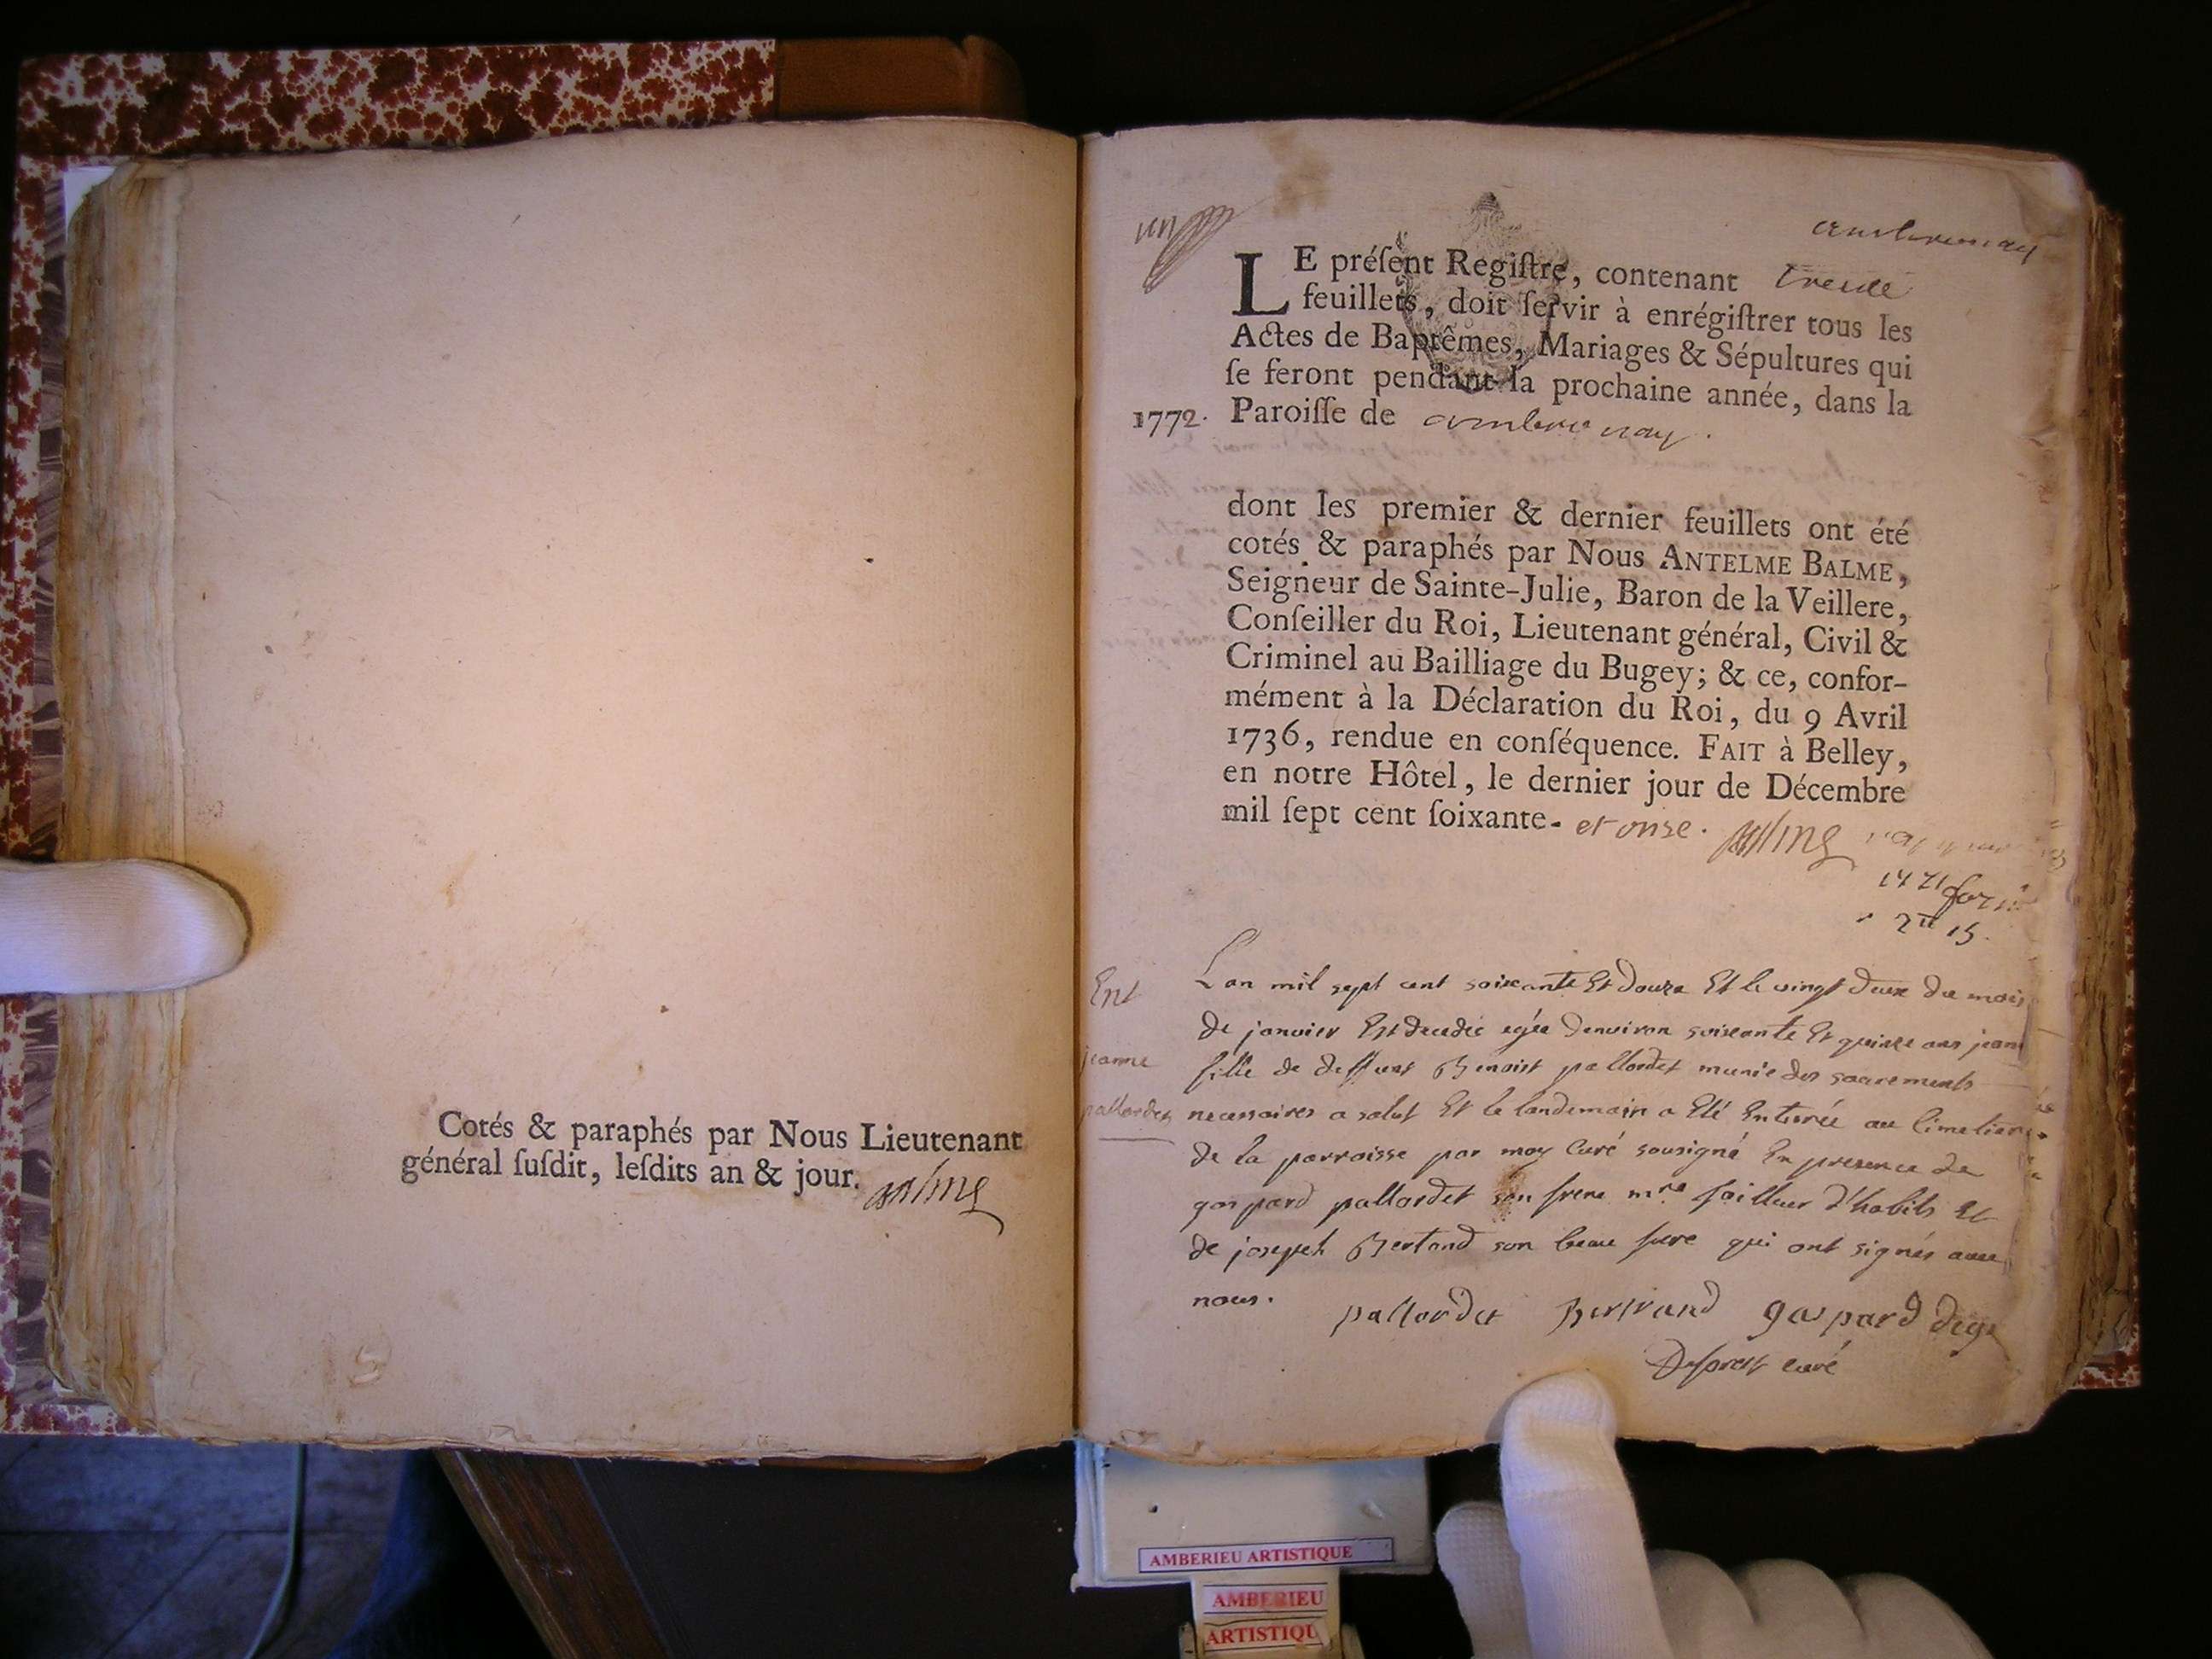 Cotés & paraphés par Nous Lieutenant
général ſuſdit, leſdits an & jour.
un
ambronay
LE préſent Regiſtre, contenant trente
feuillets, doit ſervir à enrégiſtrer tous les
Actes de Baptêmes, Mariages & Sépultures qui
ſe feront pendant la prochaine année, dans la
1772. Paroiſſe de ambronay.
dont les premier & dernier feuillets ont été
cotés & paraphés par Nous ANTELME BALME,
Seigneur de Sainte-Julie, Baron de la Veillere,
Conſeiller du Roi, Lieutenant général, Civil &
Criminel au Bailliage du Bugey; & ce, confor-
mément à la Déclaration du Roi, du 9 Avril
1736, rendue en conſéquence. FAIT à Belley,
en notre Hôtel, le dernier jour de Décembre
mil ſept cent ſoixante- et onze.
Ent
jeanne
pallordet
Lan mil sept cent soixante Et douze Et le vingt deux du mois
de janvier Est decedée agée denviron soixante Et quinze ans jeanne
fille de deffunt Benoist pallordet munie des sacrements
necessaires a salut Et le landemain a Eté Enterrée au Cimetiere
de la parroisse par moy Curé sousigné En presence de
gaspard pallordet son frere mre tailleur d'habits Et
de joseph Bertand son beau frere qui ont signés avec
nous.
pallordet Bertrand gaspard
Deforest curé
AMBERIEU ARTISTIQUE
AMBERIEU
ARTISTIQU